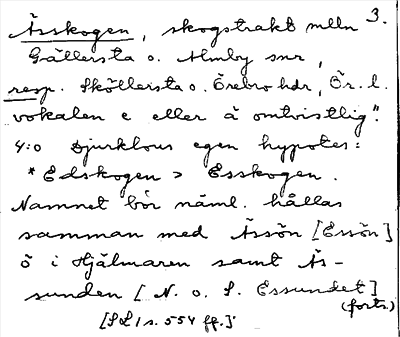 Ässkogen, skogstrakt mlln 3.
Gällersta o. Almby snr,
resp. Sköllersta o. Örebro hdr, Ör. l.
vokalen e eller ä omtvistlig".
4:o Djurklous egen hypotes:
* Edskogen > Esskogen.
Namnet bör näml. hållas
samman med Ässön [Essön]
ö i Hjälmaren samt Äs-
sunden [N. o. S. Essundet]
(forts.)
[SL 1 s. 554 ff.]